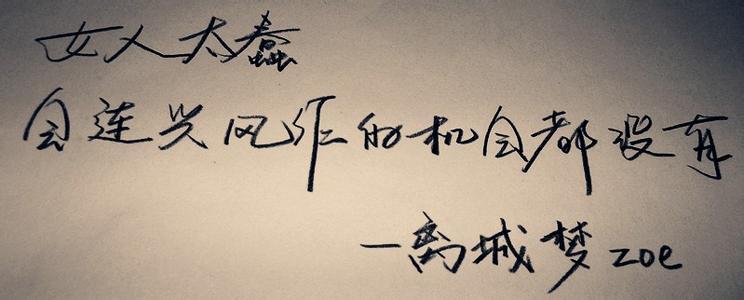 女人太蠢
会连兴风作的机会都没有
—离城梦zoe